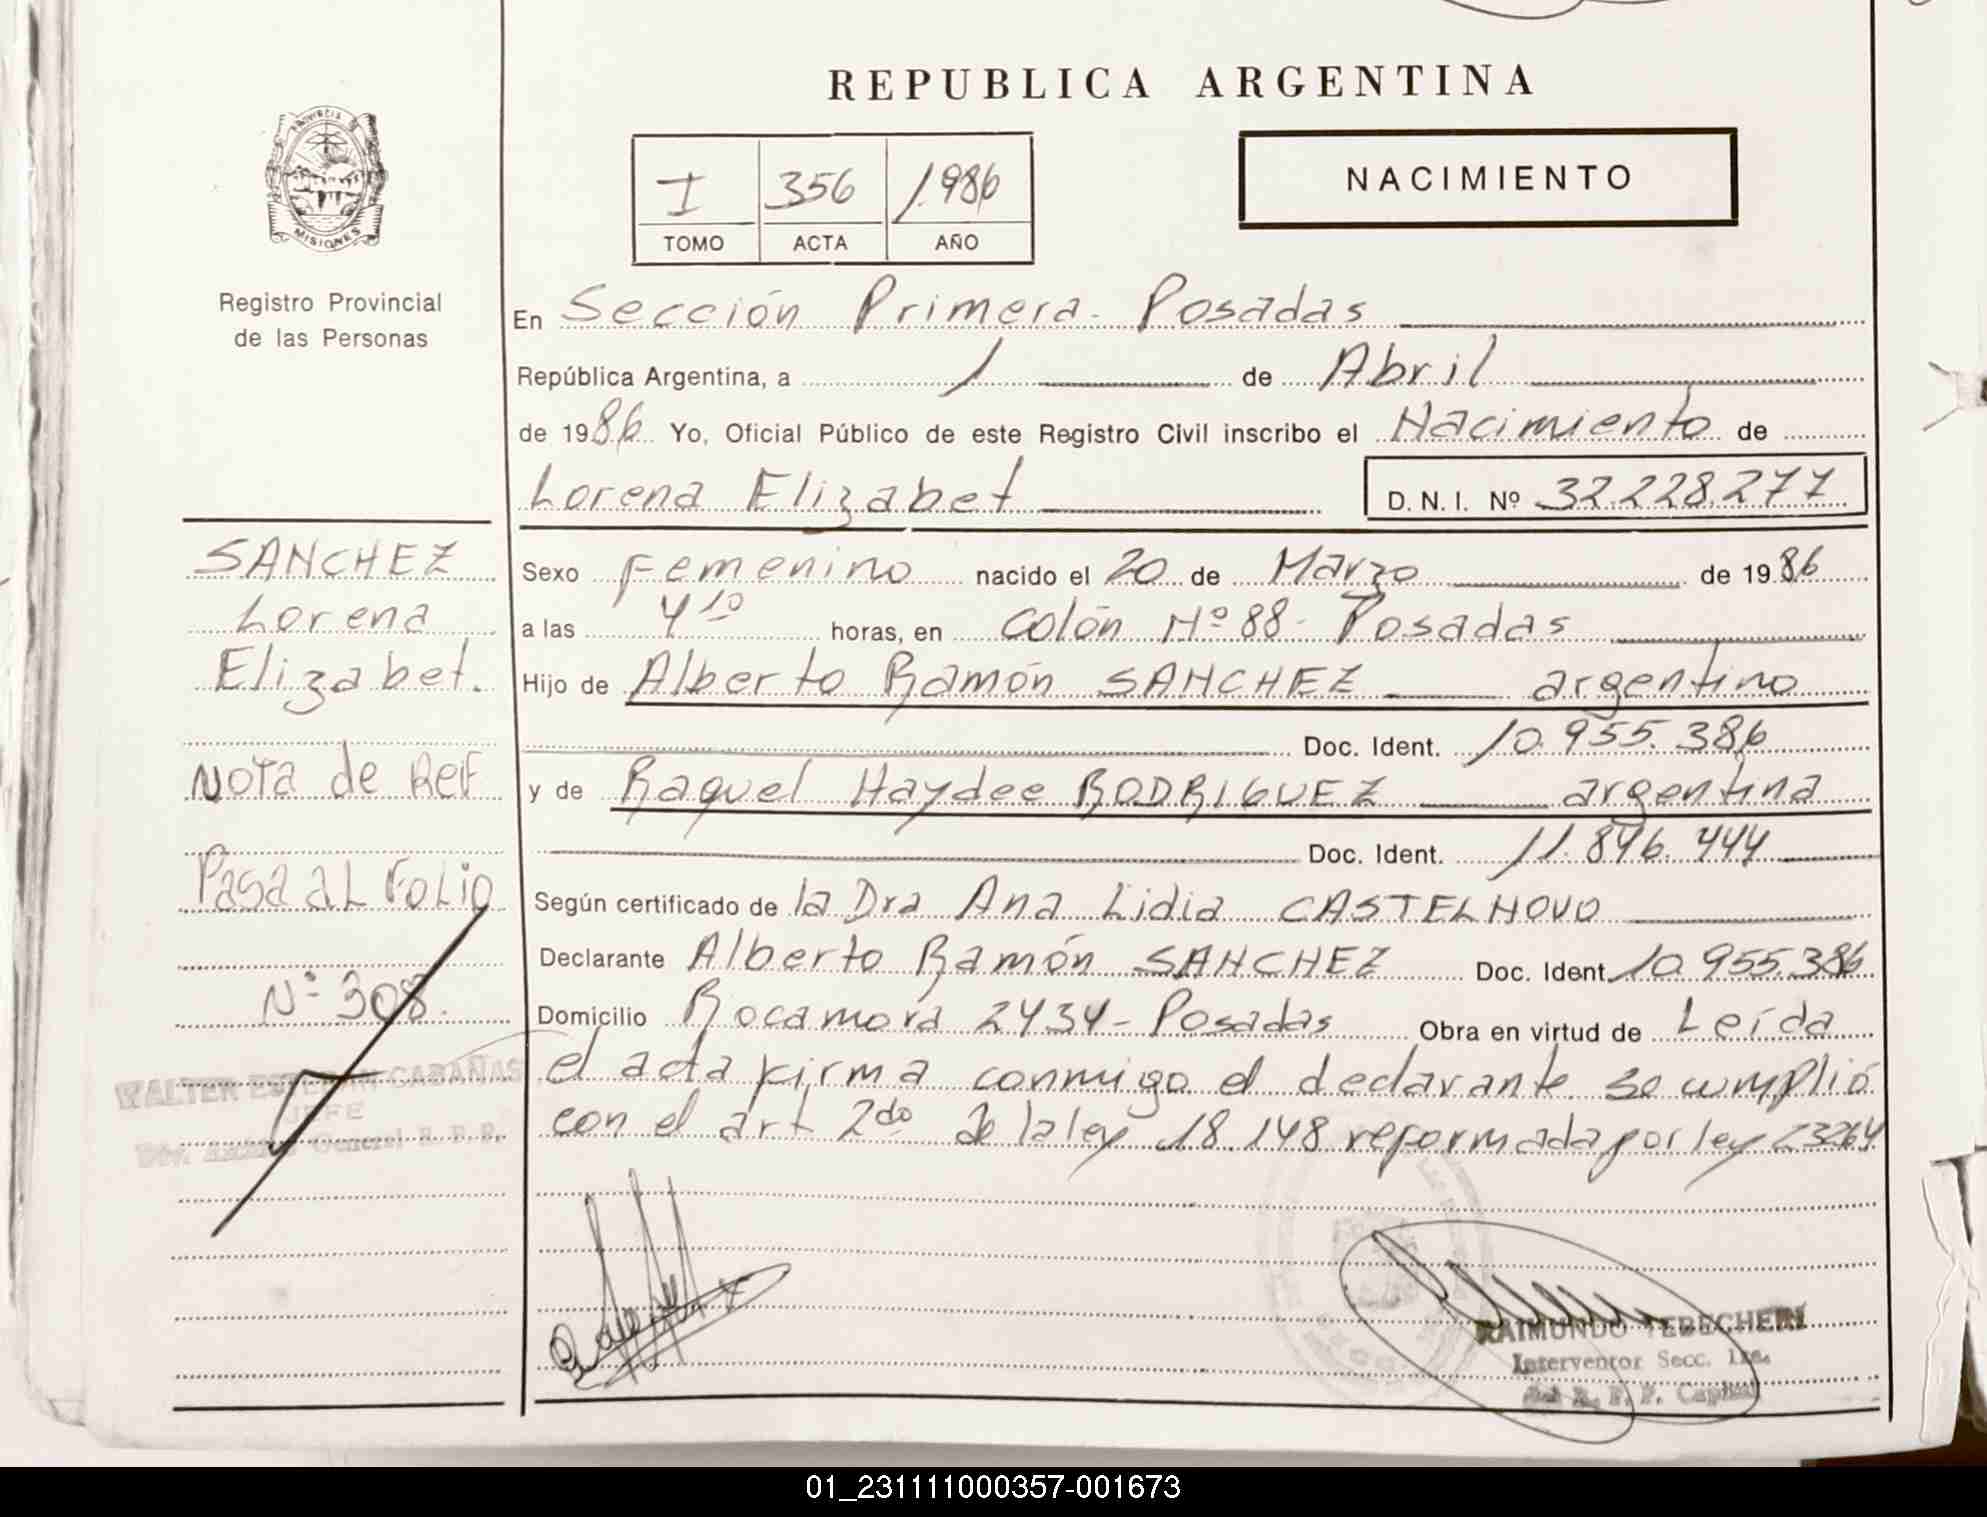 REPUBLICA ARGENTINA
PROVINCIA DE
MISIONES
Registro Provincial
de las Personas
I 356 1986
TOMO ACTA AÑO
NACIMIENTO
En Sección Primera - Posadas
República Argentina, a 1 de Abril
de 1986 Yo, Oficial Público de este Registro Civil inscribo el Nacimiento de
Lorena Elizabet D. N. I. Nº 32.228.277
Sexo Femenino nacido el 20 de Marzo de 1986
a las 4 10 horas, en Colón Nº 88 - Posadas
Hijo de Alberto Ramón SANCHEZ argentino
Doc. Ident. 10.955.386
y de Raquel Haydee RODRIGUEZ argentina
Doc. Ident. 11.846.444
Según certificado de la Dra Ana Lidia CASTELNOVO
Declarante Alberto Ramón SANCHEZ Doc. Ident. 10.955.386
Domicilio Rocamora 2434 - Posadas Obra en virtud de Leída
el acta firma conmigo el declarante. se cumplió
con el art 2do de la ley 18.148 reformada por ley 23264
SANCHEZ
Lorena
Elizabet.
NOTA de REF
PASA AL FOLIO
Nº 308.
WALTER ESTEBAN CABAÑAS
JEFE
General R. P. P.
RAIMUNDO TEBECHERI
Interventor Secc. 1ra.
R. P. P. Capital
01_231111000357-001673